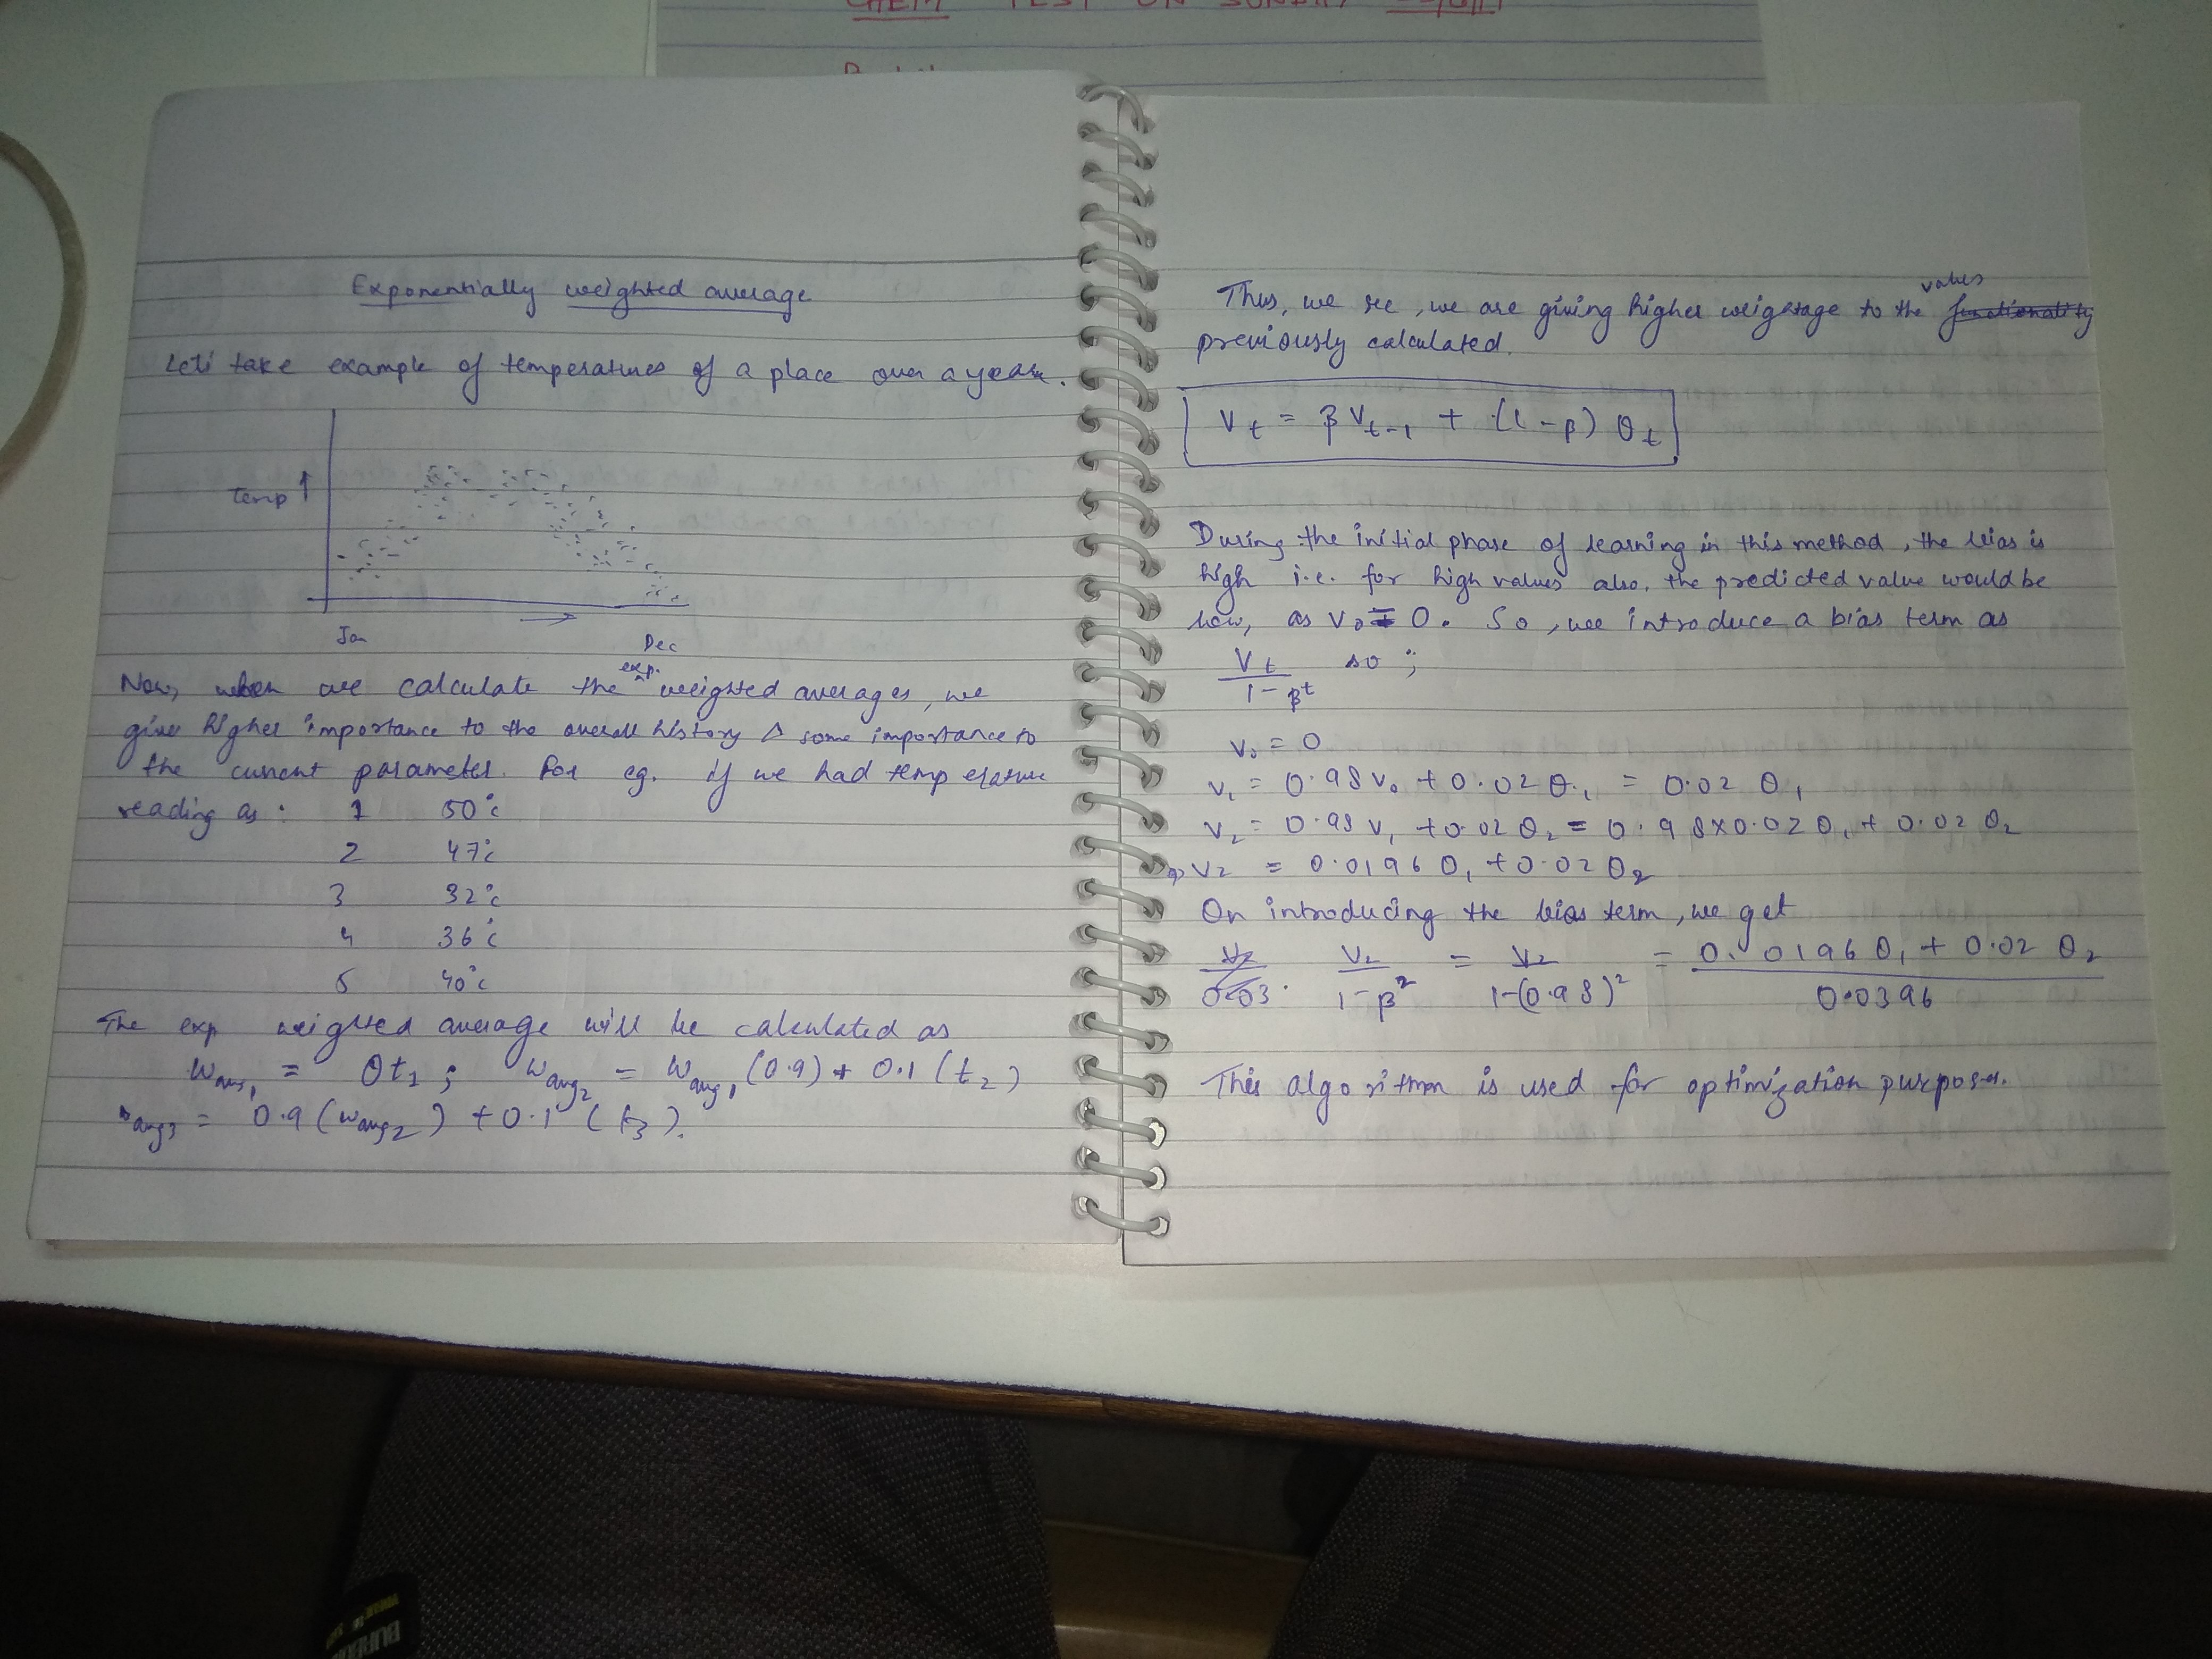 CHEM TEST ON SUNDAY
Exponentially weighted average
Let's take example of temperatures of a place over a year.
Temp ↑
Jan
Dec
Now, when we calculate the exp. weighted averages, we
give higher importance to the overall history & some importance to
the current parameter. For eg. if we had temperature
reading as : 1 50°c
2 47°c
3 32°c
4 36°c
5 40°c
The exp weighted average will be calculated as
Wavg1 = θt1 ; Wavg2 = Wavg1 (0.9) + 0.1 (t2)
Wavg3 = 0.9 (Wavg2) + 0.1 (t3).
Thus, we see, we are giving higher weightage to the values functionality
previously calculated.
Vt = βVt-1 + (1-β) θt
During the initial phase of learning in this method, the bias is
high i.e. for high values also, the predicted value would be
low, as V0 = 0. So, we introduce a bias term as
Vt / 1-β^t so ;
V0 = 0
V1 = 0.98V0 + 0.02θ1 = 0.02 θ1
V2 = 0.98 V1 + 0.02 θ2 = 0.98×0.02θ1 + 0.02 θ2
⇒ V2 = 0.0196 θ1 + 0.02 θ2
On introducing the bias term, we get
V2 / 1-β² = V2 / 1-(0.98)² = 0.0196 θ1 + 0.02 θ2 / 0.0396
This algorithm is used for optimization purposes.